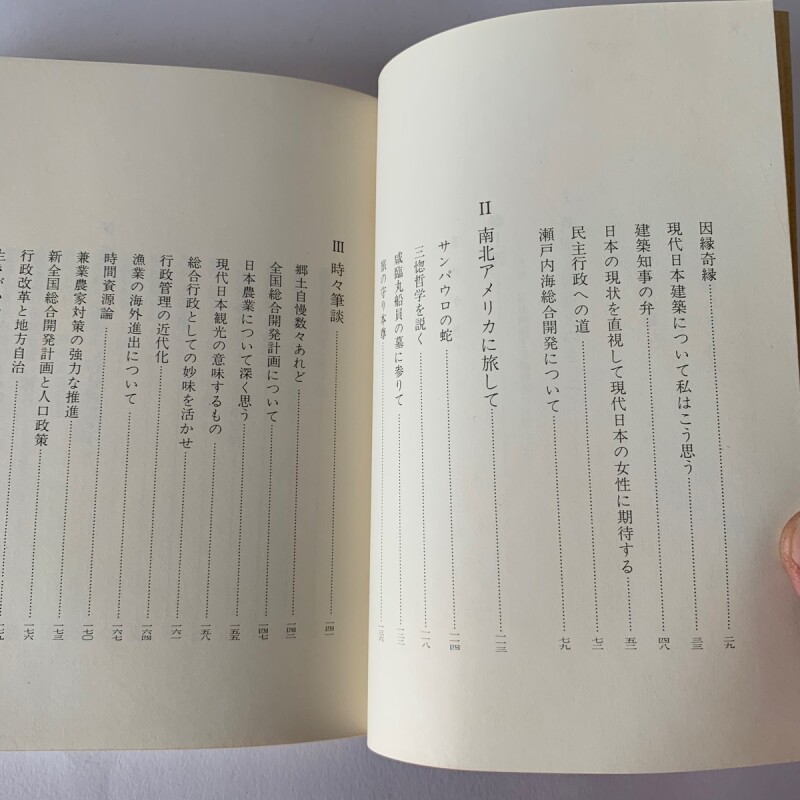 因縁奇縁……二九
現代日本建築について私はこう思う……三三
建築知事の弁……四八
日本の現状を直視して現代日本の女性に期待する……五二
民主行政への道……七二
瀬戸内海総合開発について……七九
II 南北アメリカに旅して……一一三
サンパウロの蛇……一一四
三惚哲学を説く……一一八
咸臨丸船員の墓に参りて……一三二
旅の守り本尊
III 時々筆談……一四一
郷土自慢数々あれど……一四二
全国総合開発計画について……一四七
日本農業について深く思う……一五五
現代日本観光の意味するもの……一五八
総合行政としての妙味を活かせ……一六一
行政管理の近代化……一六四
漁業の海外進出について……一六七
時間資源論……一七〇
兼業農家対策の強力な推進……一七三
新全国総合開発計画と人口政策……一七六
行政改革と地方自治……一七九